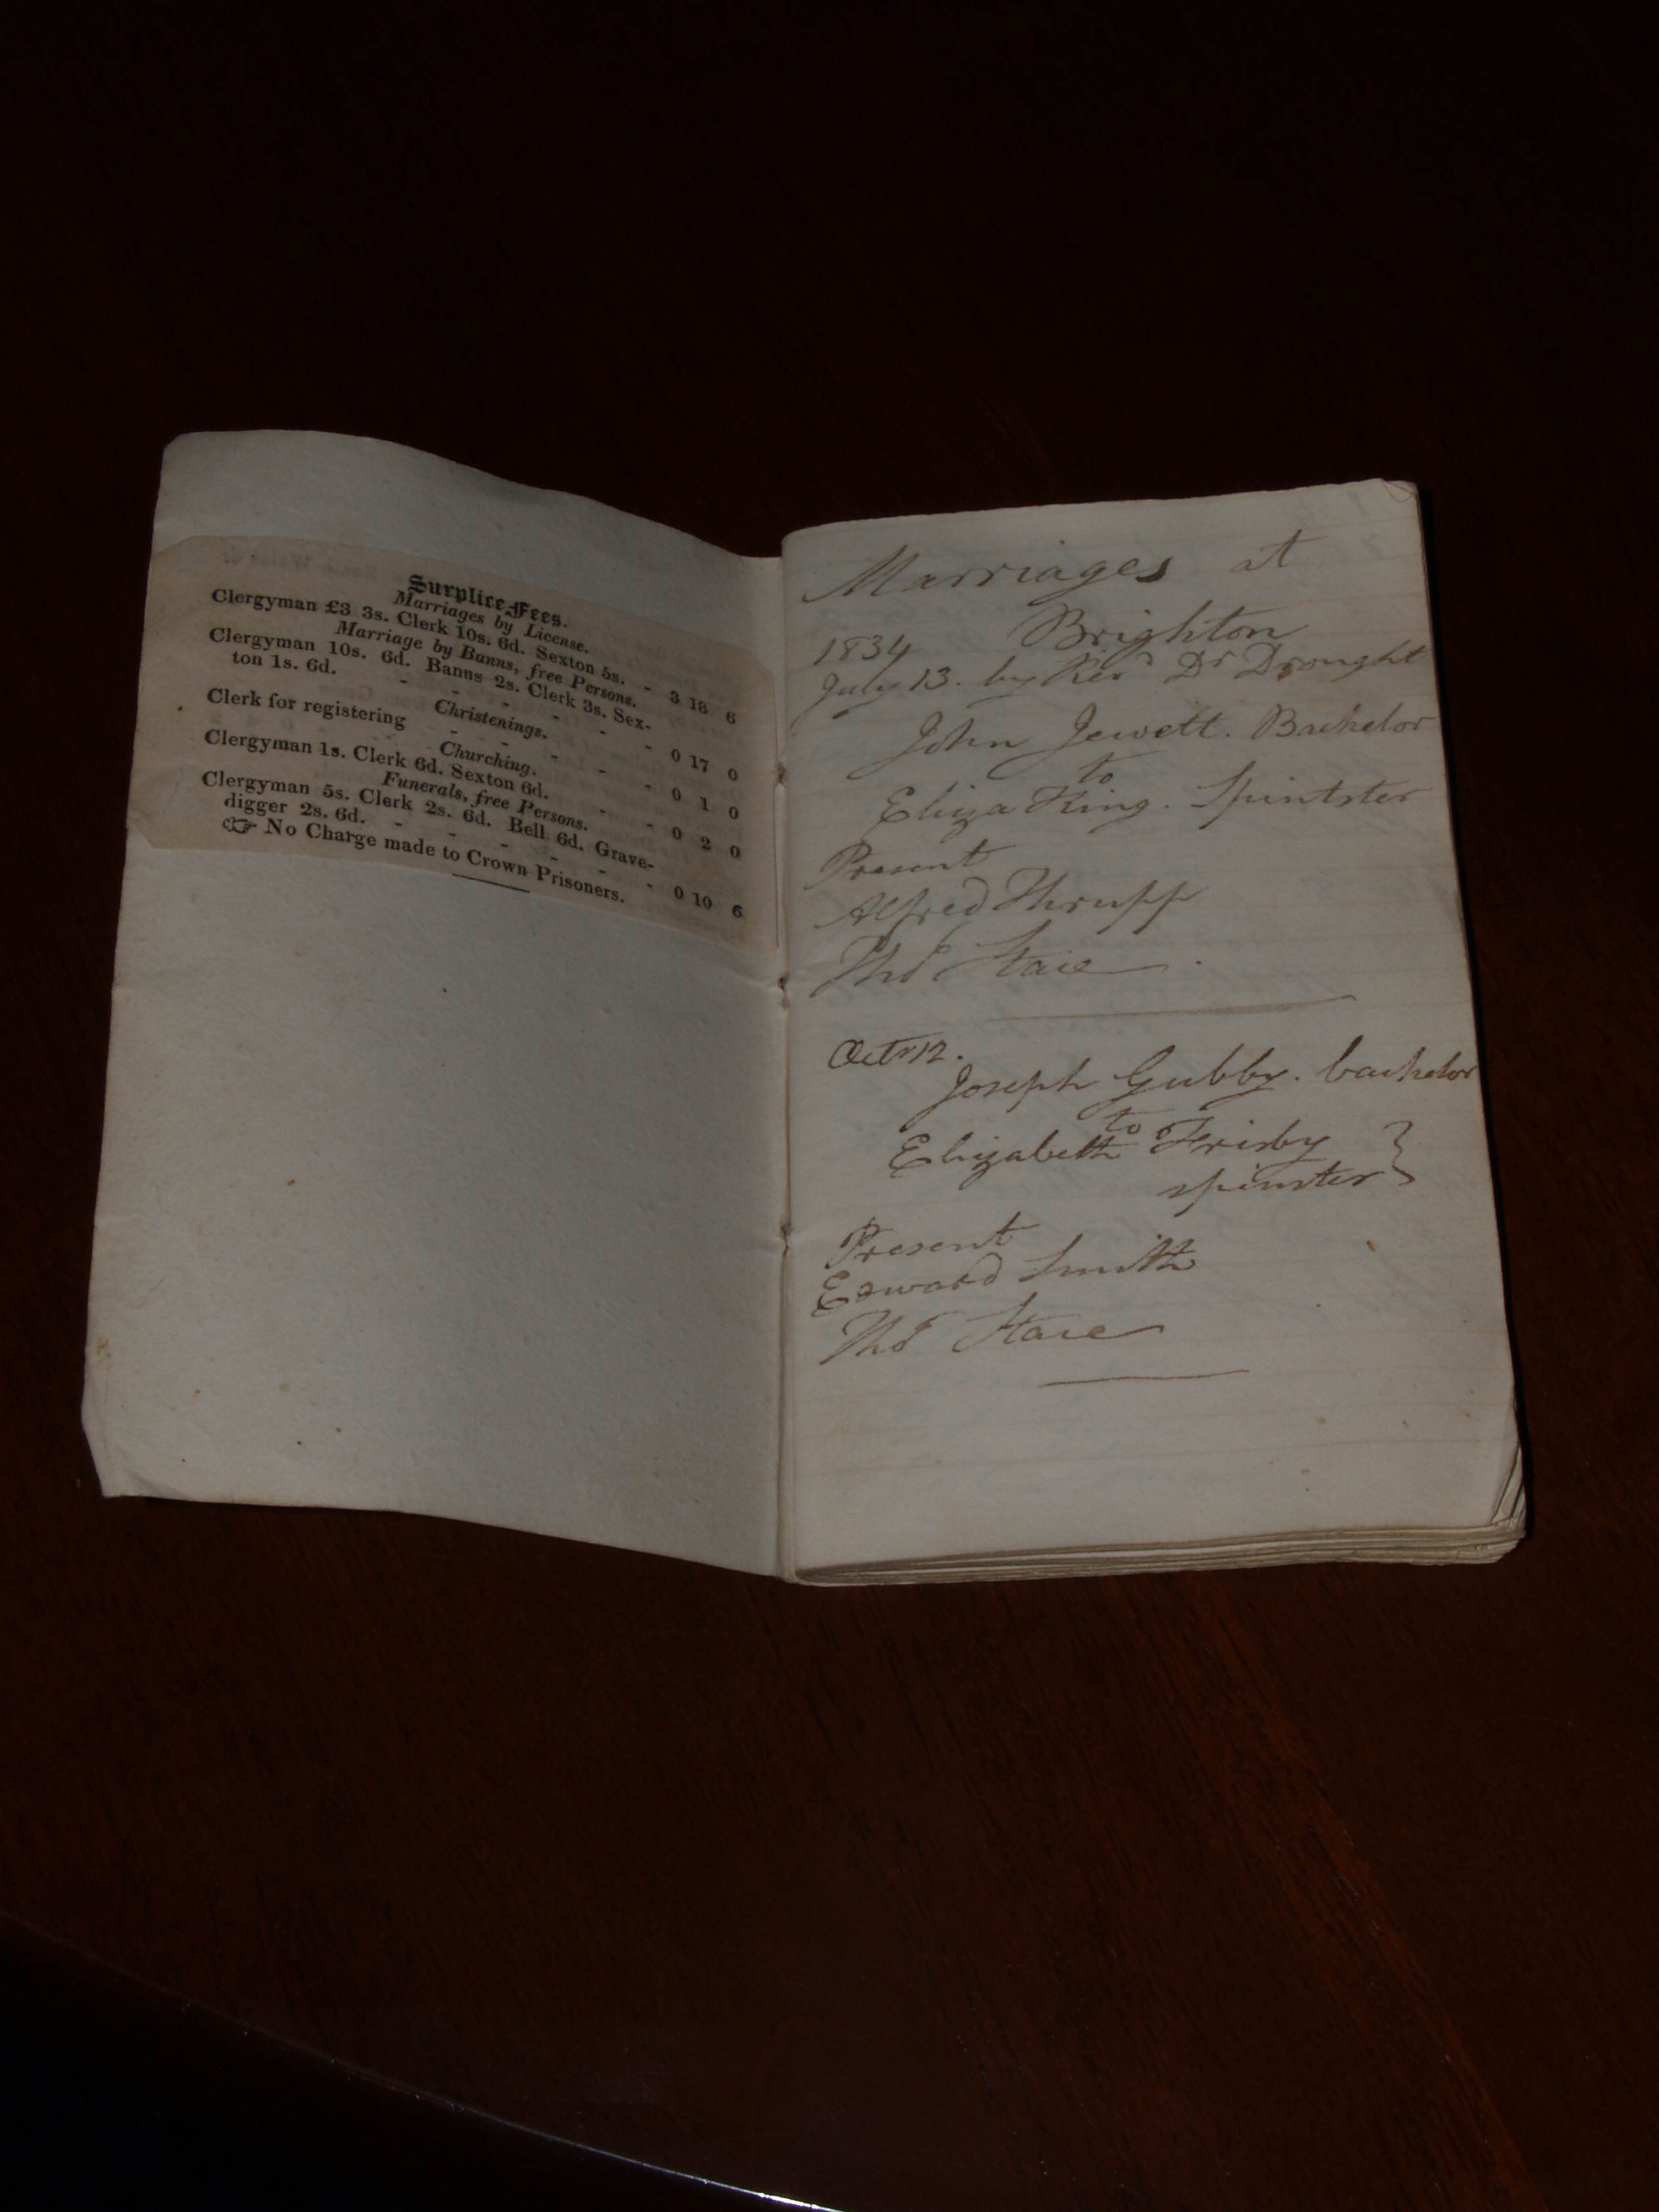 Surplice Fees.
Marriages by License.
Clergyman £3 3s. Clerk 10s. 6d. Sexton 5s. - 3 18 6
Marriage by Banns, free Persons.
Clergyman 10s. 6d. Banns 2s. Clerk 3s. Sex-
ton 1s. 6d. - - - - - 0 17 0
Christenings.
Clerk for registering - - - - - 0 1 0
Churching.
Clergyman 1s. Clerk 6d. Sexton 6d. - - 0 2 0
Funerals, free Persons.
Clergyman 5s. Clerk 2s. 6d. Bell 6d. Grave-
digger 2s. 6d. - - - - - - 0 10 6
☞ No Charge made to Crown Prisoners.
Marriages at
Brighton
1834
July 13. by Revd Dr Drought
John Jewett. Bachelor
to
Eliza King. Spintster
Present
Alfred Thrupp
Thos Stace
Octr 12.
Joseph Gubby. bachelor
to
Elizabeth Frisby
spinster }
Present
Edward Smith
Thos Stace